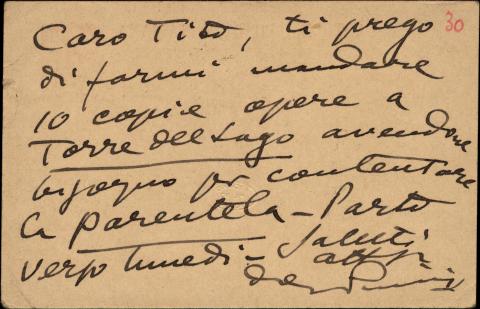 30
Caro Tito, ti prego
di farmi mandare
10 copie opere a
Torre del Lago avendone
bisogno per contentare
la parentela - Parto
verso lunedì - Saluti